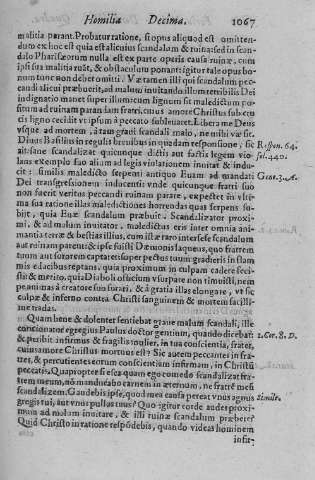 Homilia Decima. 1067
malitia parant. Probatur ratione, si opus aliquod est omitten-
du ex hoc est quia est alicuius scandalum & ruina: sed in scan-
dalo Pharisæorum nulla est ex parte operis causa ruinæ, cum
ipsi sua malitia rust, & obstaculum ponant: igitur tale opus bo-
num tunc non debet omitti. Væ tamen illi qui scandalum pec-
candi alicui præbuerit, ad malum inuitando illum terribilis Dei
indignatio manet super illum cum lignum sit maledictum po-
situm ad ruinam parandam fratri, cuius amore Christus sub cru
cis ligno cecidit vt ipsum à peccato subleuaret. Libera me Deus
vsque ad mortem, à tam graui scandali malo, ne mihi væ sit.
Diuus Basilius in regulis breuibus in quadam responsione, sic
ait: sane scandalizat quicunque dictis aut factis legem vio-
lans exemplo suo alium ad legis violationem inuitat & indu-
cit: similis maledicto serpenti antiquo Euam ad mandati
Dei transgressionem inducenti vnde quicunque fratri suo
non fuerit veritus peccandi ruinam parare, expectet in vlti-
ma sua ratione illas maledictiones horrendas quas serpens su-
bijt, quia Euæ scandalum præbuit. Scandalizator proxi-
mi, & ad malum inuitator, maledictus eris inter omnia ani-
mantia terræ & bestias illius, cum istæ raro inter se se scandalum
aut ruinam parent: & ipse fuisti Dæmonis laqueus, quo fratrem
tuum aut sororem captaret: super pectus tuum gradieris in flam
mis edacibus reptans, quia proximum in culpam cadere feci-
sti: & merito, quia Diaboli officium vsurpare non timuisti, nem
pe animas à creatore suo furari, & à gratia illas elongare, vt sic
culpæ & inferno contra Christi sanguinem & mortem facilli-
me tradas.
Quam bene & dolenter sentiebat graue malum scandali, ille
concionator egregius Paulus doctor gentium, quando dicebat:
& peribit infirmus & fragilis mulier, in tua conscientia, frater,
cuius amore Christus mortuus est? Sic autem peccantes in fra-
tres, & percutientes eorum conscientiam infirmam, in Christũ
peccatis. Quapropter si esca quam ego comedo scandalizat fra-
trem meum, nõ manducabo carnem in æternum, ne fratrẽ meũ
scandalizem. Gaudebis ipse, quod mea causa pereat vnus agnus
gregis tui, aut vnus pullus tuus? Quo igitur corde audes proxi-
mum ad malum inuitare, & illi ruinæ scandalum præbere?
Quid Christo in ratione respõdebis, quando videas hominem
infir-
Respon. 64.
fol. 440.
Gene. 3. A.
1. Cor. 8. D.
Simile.